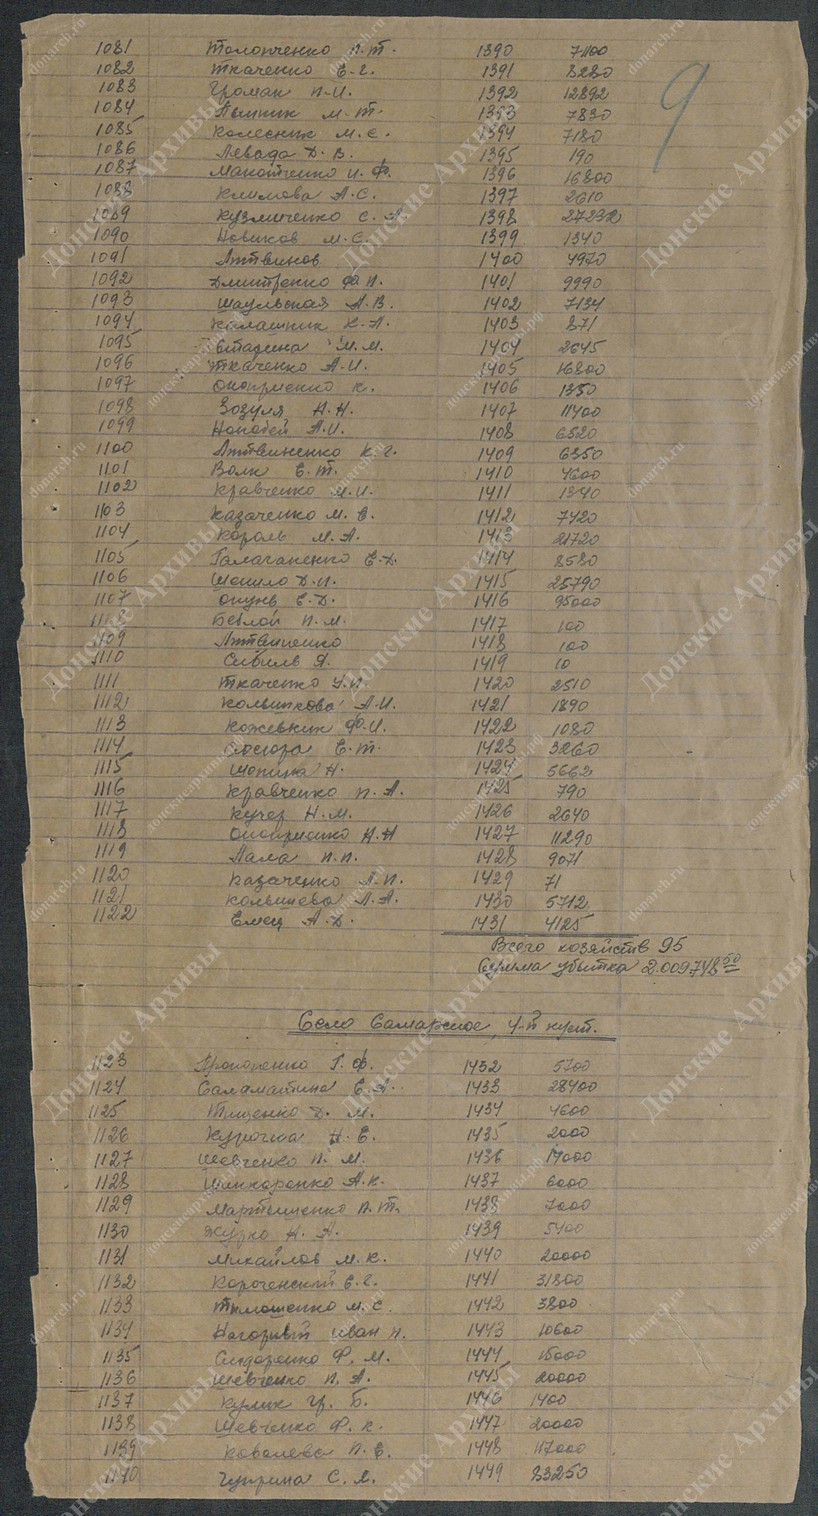 9
1081 Толопченко П.Т. 1390 7100
1082 Ткаченко Е.Г. 1391 8280
1083 Громак П.И. 1392 12892
1084 М.Т. 1393 7830
1085 Колесник М.С. 1394 7180
1086 Левада Д.В. 1395 190
1087 И.Ф. 1396 16800
1088 Климова А.С. 1397 2610
1089 Кузмиченко С.А. 1398 27232
1090 Новиков М.С. 1399 1340
1091 Литвинов 1400 4970
1092 Дмитренко Ф.П. 1401 9990
1093 Шаульская А.В. 1402 7134
1094 Калашник К.А. 1403 871
1095 М.М. 1404 2645
1096 Ткаченко А.И. 1405 16800
1097 Оноприенко К. 1406 1350
1098 Зозуля Н.Н. 1407 11400
1099 А.И. 1408 6520
1100 Литвиненко К.Г. 1409 6350
1101 Волк Е.Т. 1410 4600
1102 Кравченко М.И. 1411 1340
1103 Казаченко М.Е. 1412 7420
1104 Король М.А. 1413 21720
1105 Галаганенко Е.Д. 1414 8580
1106 Шопило Д.И. 1415 25790
1107 Окунь Е.Д. 1416 95000
1108 Белой П.М. 1417 100
1109 Литвиненко 1418 100
1110 Сибиль Я. 1419 10
1111 Ткаченко У.П. 1420 2510
1112 А.И. 1421 1890
1113 Кожевник Ф.И. 1422 1080
1114 Е.Т. 1423 3260
1115 Шопина Н. 1424 5662
1116 Кравченко П.А. 1425 790
1117 Кучер Н.М. 1426 2640
1118 Оноприенко Н.Н 1427 11290
1119 П.П. 1428 9071
1120 Казаченко А.П. 1429 71
1121 А.А. 1430 5712
1122 Емец А.Д. 1431 4125
Всего хозяйств 95
Сумма убытка 2.009748 50
Село Самарское, 4-й куст.
1123 Прохоренко Г.Ф. 1432 5700
1124 Саламатина Е.А. 1433 28400
1125 Тищенко Д.М. 1434 4600
1126 Курочка Н.Е. 1435 2000
1127 Шевченко П.М. 1436 17000
1128 Шинкаренко А.К. 1437 6000
1129 Мартыненко П.Т. 1438 7000
1130 Журко А.А. 1439 5400
1131 Михайлов М.К. 1440 20000
1132 Короченский Е.Г. 1441 31800
1133 Тимошенко М.С. 1442 3800
1134 Нагорный Иван П. 1443 10600
1135 Сидоренко Ф.М. 1444 15000
1136 Шевченко П.А. 1445 20000
1137 Кулик Гр. Б. 1446 1400
1138 Шевченко Ф.К. 1447 20000
1139 Ковалева П.Е. 1448 117000
1140 Чуприна С.Я. 1449 83250